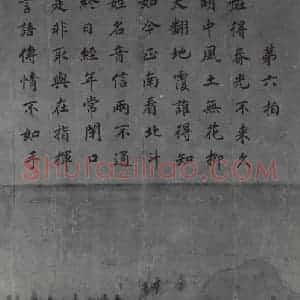 第六拍
怪得春光不來久
胡中風土無花柳
天翻地覆誰得知
如今正南看北斗
姓名音信兩不通
終日經年常閉口
是非取與在指撝
言語傳情不如手
shufaziliao.com